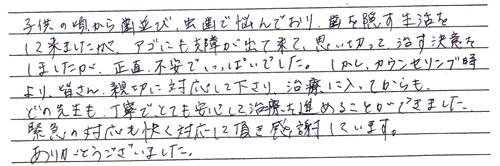 子供の頃から歯並び、虫歯で悩んでおり、歯を隠す生活を
して来ましたが、アゴにも支障が出て来て、思い切って治す決意を
しましたが、正直、不安でいっぱいでした。しかし、カウンセリング時
より、皆さん、親切に対応して下さり、治療に入ってからも、
どの先生も、丁寧でとても安心して治療を進めることができました。
緊急の対応も快く対応して頂き感謝しています。
ありがとうございました。